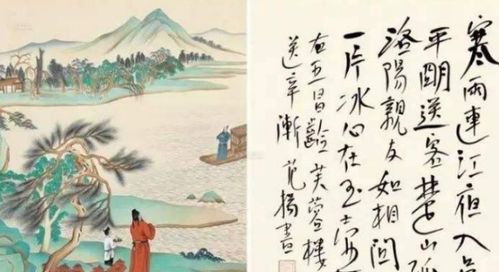 寒雨連江夜入
平明送客楚山孤
洛陽親友如相問
一片冰心在玉壺
右王昌齡芙蓉樓
送辛漸 范揚書